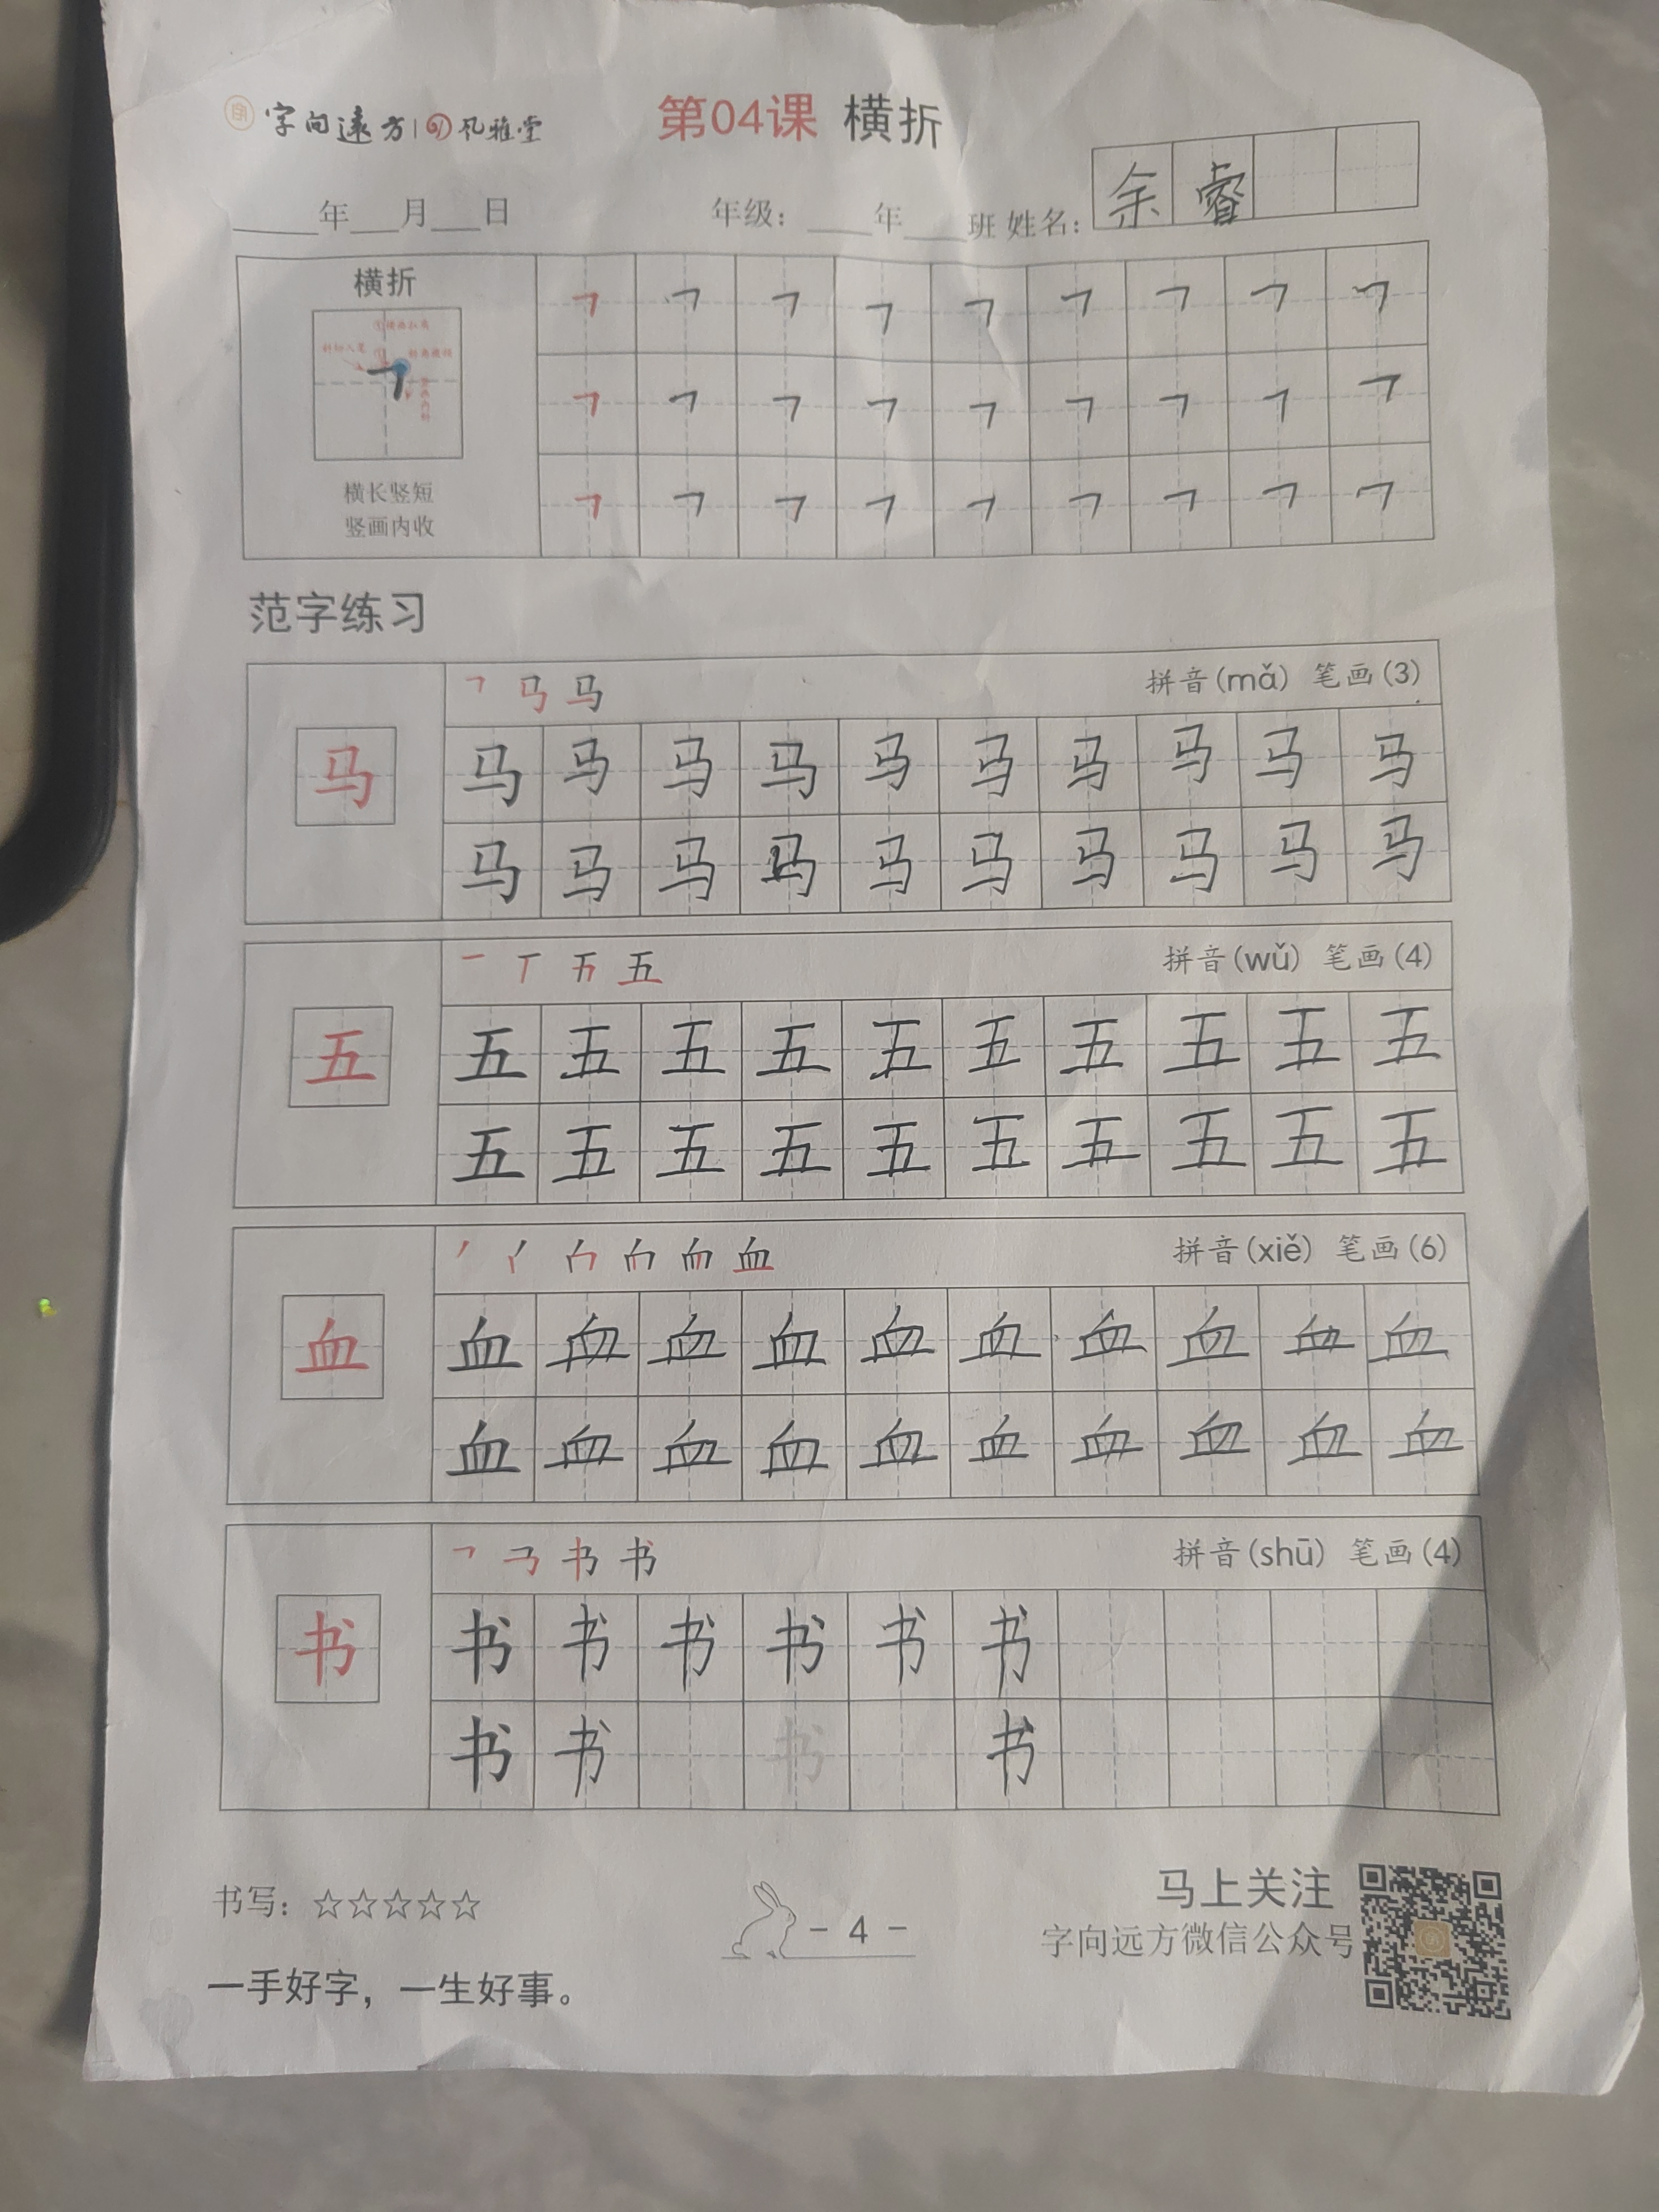 字向远方 | 孔雅堂
第04课 横折
____年__月__日 年级：___年___班 姓名：余睿
横折
横长竖短
竖画内收
范字练习
拼音(mǎ) 笔画(3)
马 马 马 马 马 马 马 马 马 马 马
马 马 马 马 马 马 马 马 马 马
拼音(wǔ) 笔画(4)
五 五 五 五 五 五 五 五 五 五 五
五 五 五 五 五 五 五 五 五 五
拼音(xiě) 笔画(6)
血 血 血 血 血 血 血 血 血 血 血
血 血 血 血 血 血 血 血 血 血
拼音(shū) 笔画(4)
书 书 书 书 书 书 书
书 书 书 书
书写：☆☆☆☆☆
- 4 -
马上关注
字向远方微信公众号
一手好字，一生好事。